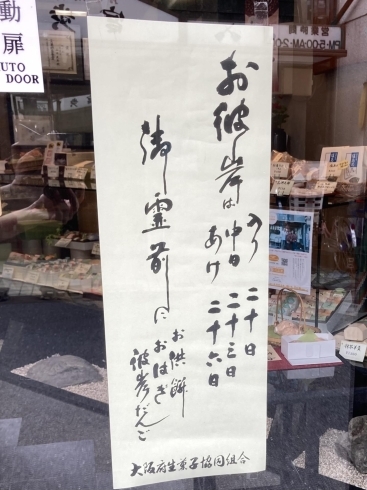 動
扉
UTO
DOOR
お彼岸は
入り 二十日
中日 二十三日
あけ 二十六日
御霊前に
お供餅
おはぎ
彼岸だんご
大阪府生菓子協同組合
営業時間